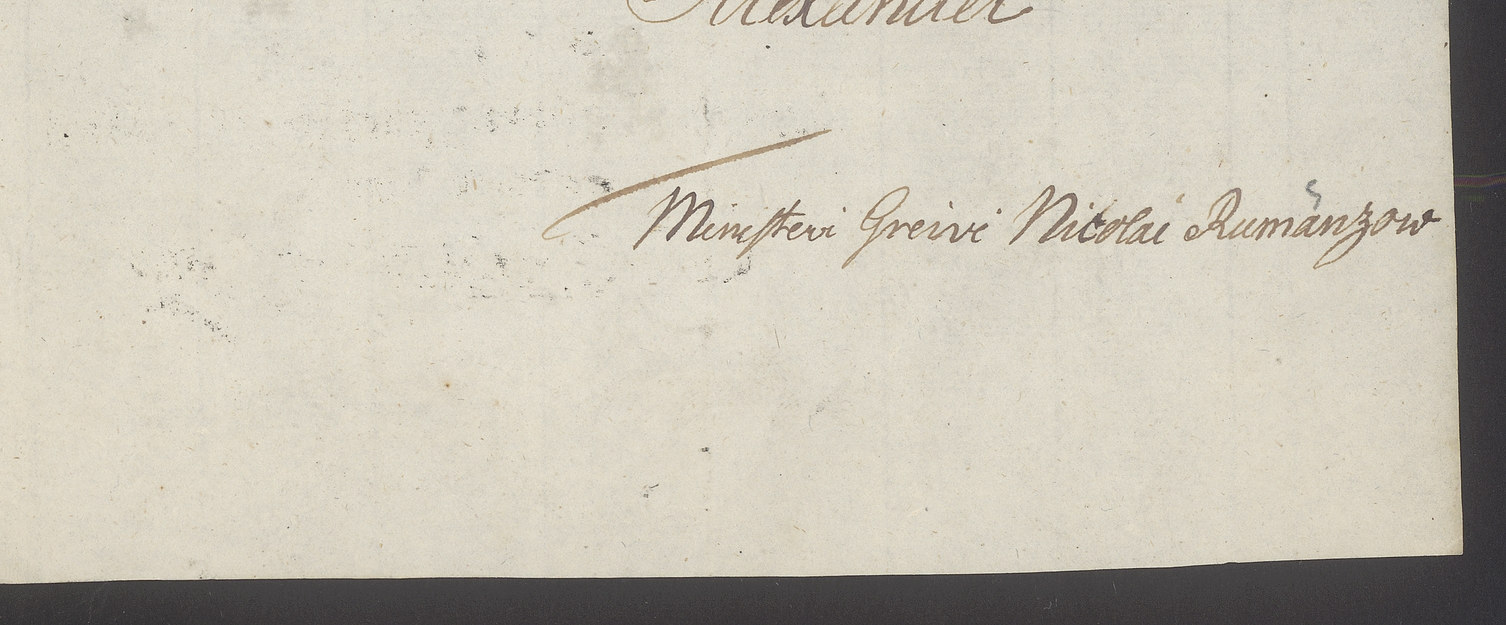 Alexander
Ministeri Greivi Nicolai Rumänzow